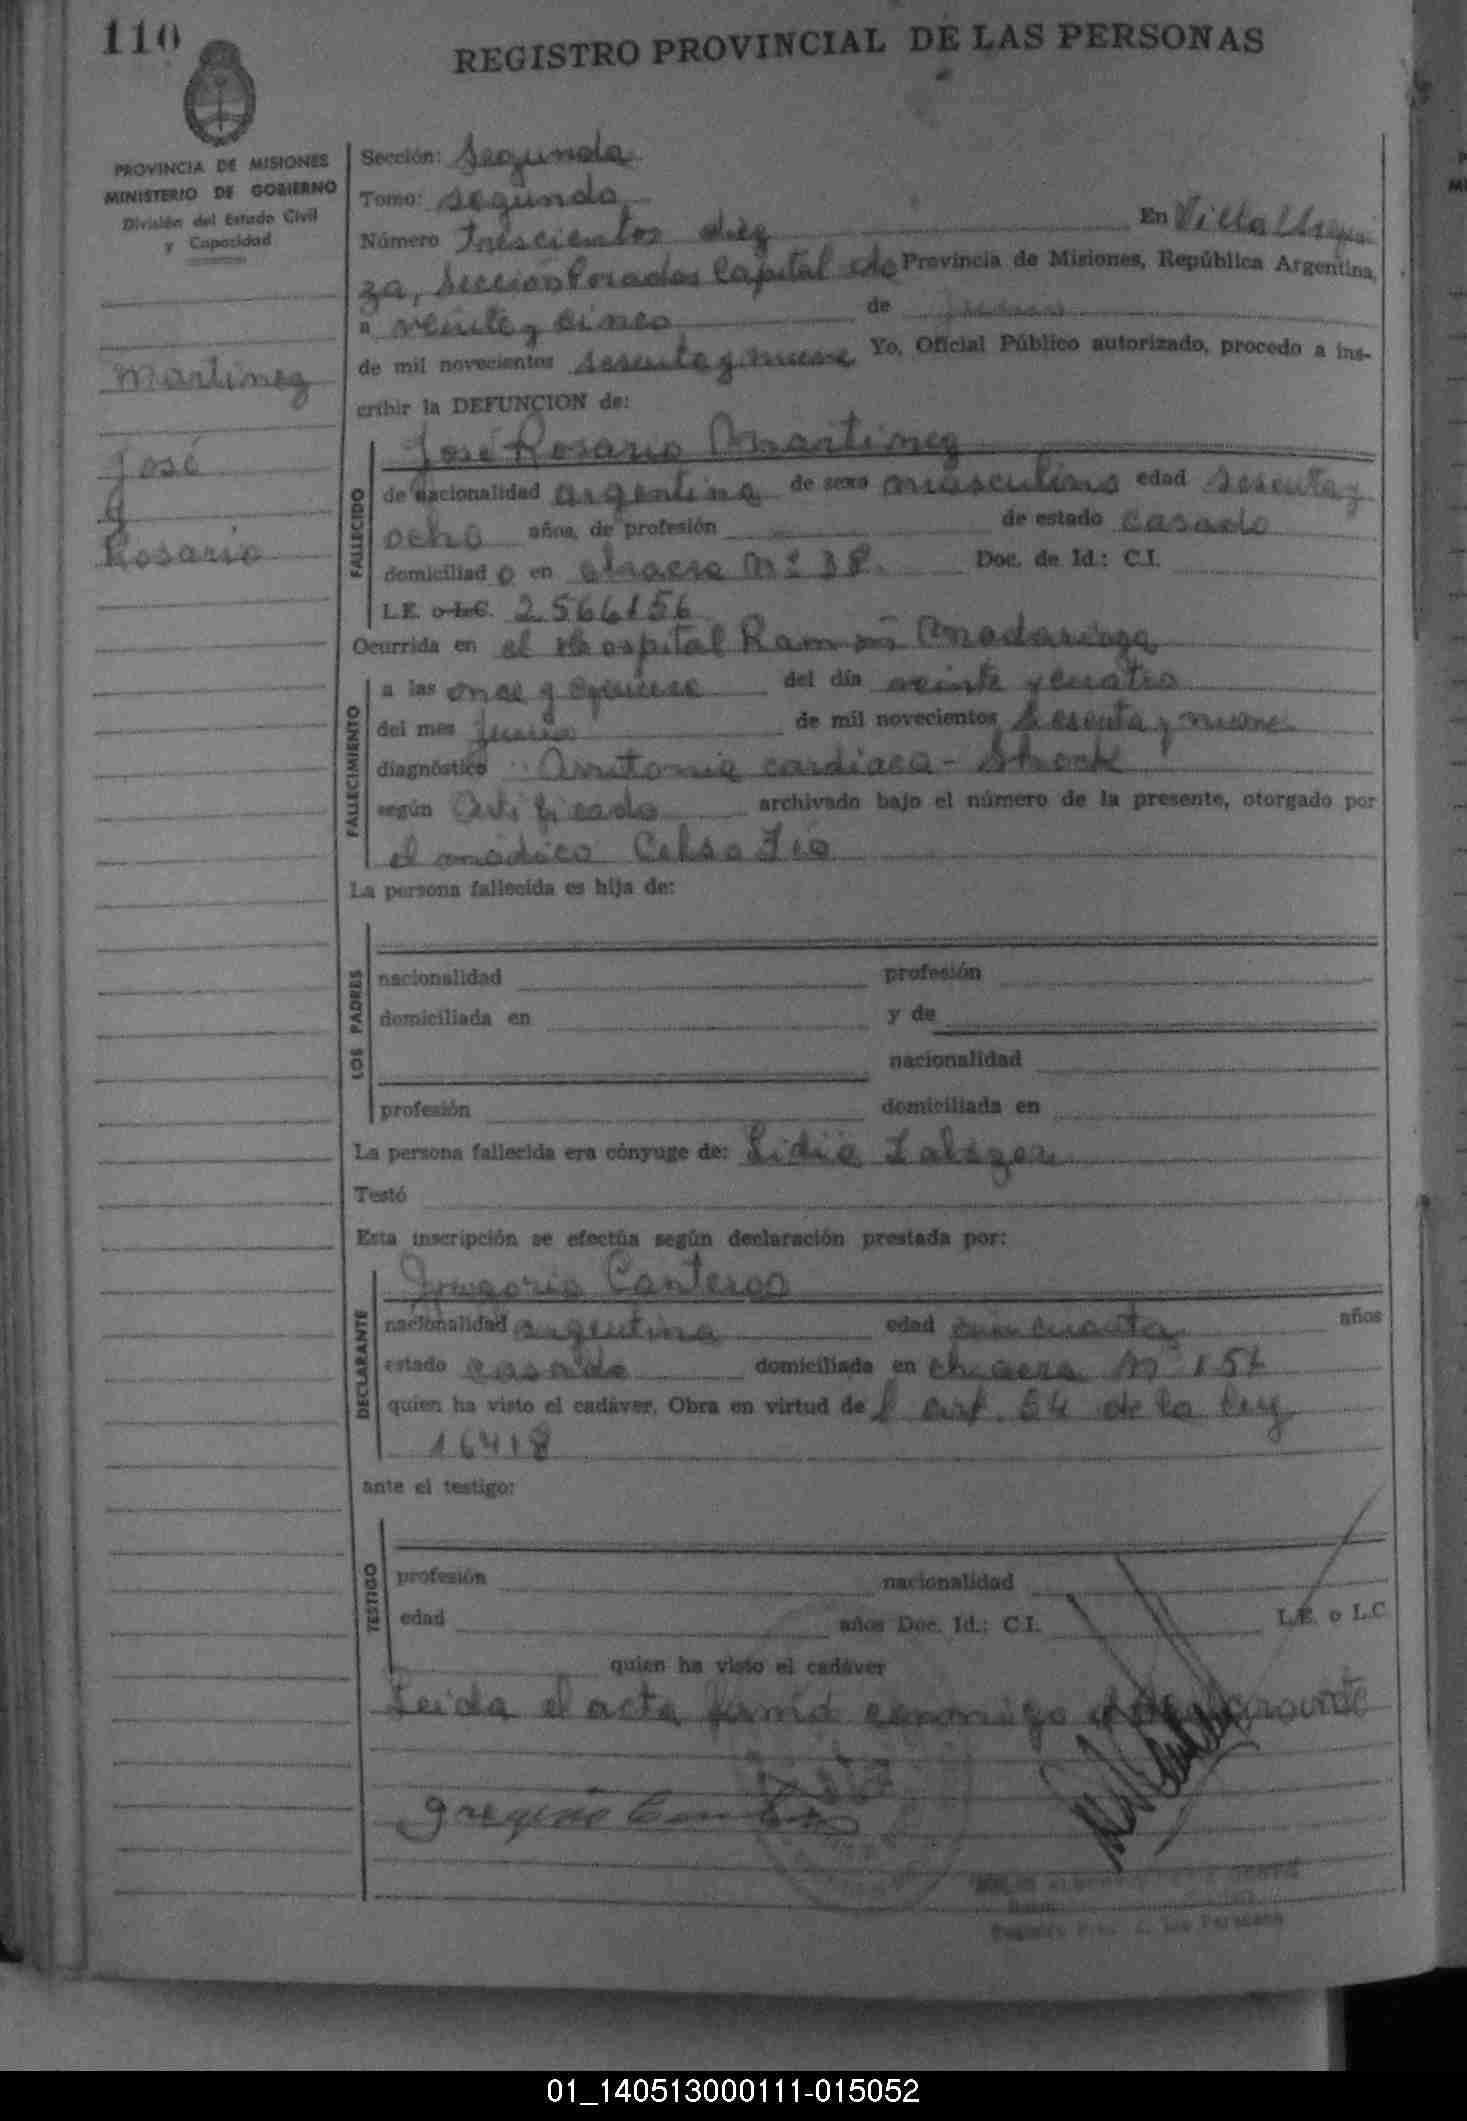 110
REGISTRO PROVINCIAL DE LAS PERSONAS
PROVINCIA DE MISIONES
MINISTERIO DE GOBIERNO
División del Estado Civil
y Capacidad
Martinez
José
y
Rosario
Sección: Segunda
Tomo: segundo
Número Trescientos diez En Villa Urqui
za, Sección Posadas Capital de Provincia de Misiones, República Argentina,
a veinte y cinco de Junio
de mil novecientos sesenta y nueve Yo, Oficial Público autorizado, procedo a ins-
cribir la DEFUNCION de:
José Rosario Martinez
FALLECIDO
de nacionalidad argentina de sexo masculino edad sesenta y
ocho años, de profesión de estado casado
domiciliado en chacra Nº 38. Doc. de Id.: C.I.
L.E. o L.C. 2.566156
Ocurrida en el Hospital Ramón Madariaga
FALLECIMIENTO
a las once y quince del día veinte y cuatro
del mes Junio de mil novecientos sesenta y nueve
diagnóstico Arritmia cardiaca - Shock
según Certificado archivado bajo el número de la presente, otorgado por
el médico Celso
La persona fallecida es hija de:
LOS PADRES
nacionalidad profesión
domiciliada en y de
nacionalidad
profesión domiciliada en
La persona fallecida era cónyuge de: Lidia
Testó
Esta inscripción se efectúa según declaración prestada por:
DECLARANTE
Gregorio Canteros
nacionalidad argentina edad cincuenta años
estado casado domiciliada en chacra Nº 157
quien ha visto el cadáver, Obra en virtud del art. 54 de la ley
16418
ante el testigo:
TESTIGO
profesión nacionalidad
edad años Doc. Id.: C.I. L.E. o L.C.
quien ha visto el cadáver
Leida el acta firmó conmigo el declarante
Registro Prov. de las Personas
01_140513000111-015052